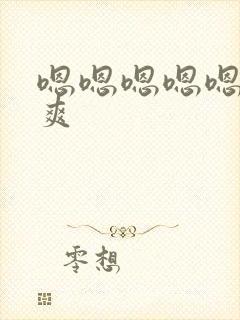 嗯嗯嗯嗯嗯
爽
零想